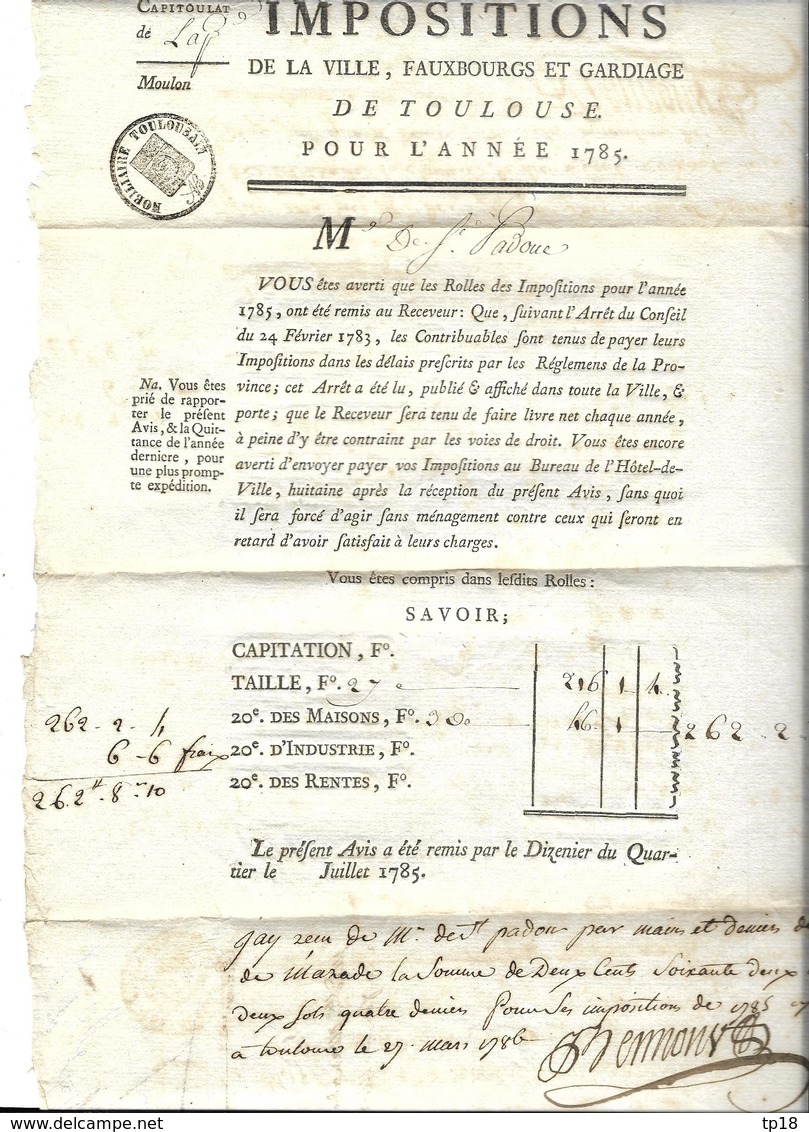 CAPITOULAT
de
Moulon
IMPOSITIONS
DE LA VILLE, FAUXBOURGS ET GARDIAGE
DE TOULOUSE.
POUR L'ANNÉE 1785.
NOBILIAIRE TOULOUSAIN
M de St. Padoue
VOUS êtes averti que les Rolles des Impoſitions pour l'année
1785, ont été remis au Receveur: Que, ſuivant l'Arrêt du Conſeil
du 24 Février 1783, les Contribuables ſont tenus de payer leurs
Impoſitions dans les délais preſcrits par les Réglemens de la Pro-
vince; cet Arrêt a été lu, publié & affiché dans toute la Ville, &
porte; que le Receveur ſera tenu de faire livre net chaque année,
à peine d'y être contraint par les voies de droit. Vous êtes encore
averti d'envoyer payer vos Impoſitions au Bureau de l'Hôtel-de-
Ville, huitaine après la réception du préſent Avis, ſans quoi
il ſera forcé d'agir ſans ménagement contre ceux qui ſeront en
retard d'avoir ſatisfait à leurs charges.
Na. Vous êtes
prié de rappor-
ter le préſent
Avis, & la Quit-
tance de l'année
derniere, pour
une plus promp-
te expédition.
Vous êtes compris dans leſdits Rolles:
SAVOIR;
CAPITATION, Fo.
TAILLE, Fo. 27 216 1 4
20e. DES MAISONS, Fo. 30 46 1 262 - 2 -
20e. D'INDUSTRIE, Fo.
20e. DES RENTES, Fo.
262 - 2 - 4
6 - 6 frais
262 - 8 - 10
Le préſent Avis a été remis par le Dizenier du Quar-
tier le Juillet 1785.
jay reçu de Mr. de St padou par mains et deniers de
de Marade la Somme de Deux Cents Soixante deux
deux sols quatre deniers Pour Ses impositions de 1785
a toulouse le 27 mars 1786
tp18